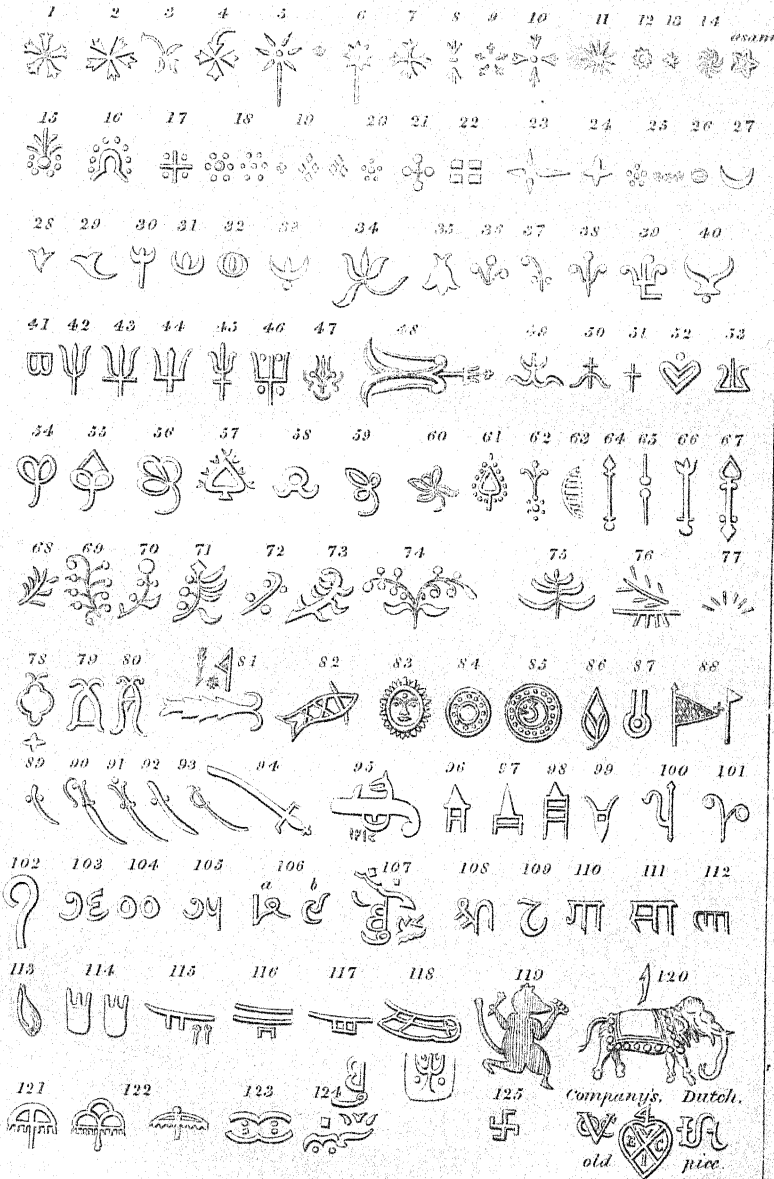 1 2 3 4 5 6 7 8 9 10 11 12 13 14 asani
15 16 17 18 19 20 21 22 23 24 25 26 27
28 29 30 31 32 33 34 35 36 37 38 39 40
41 42 43 44 45 46 47 48 49 50 51 52 53
54 55 56 57 58 59 60 61 62 63 64 65 66 67
68 69 70 71 72 73 74 75 76 77
78 79 80 81 82 83 84 85 86 87 88
89 90 91 92 93 94 95 96 97 98 99 100 101
102 103 104 105 106 107 108 109 110 111 112
a b
113 114 115 116 117 118 119 120
121 122 123 124 125 Company's, Dutch.
old pice.